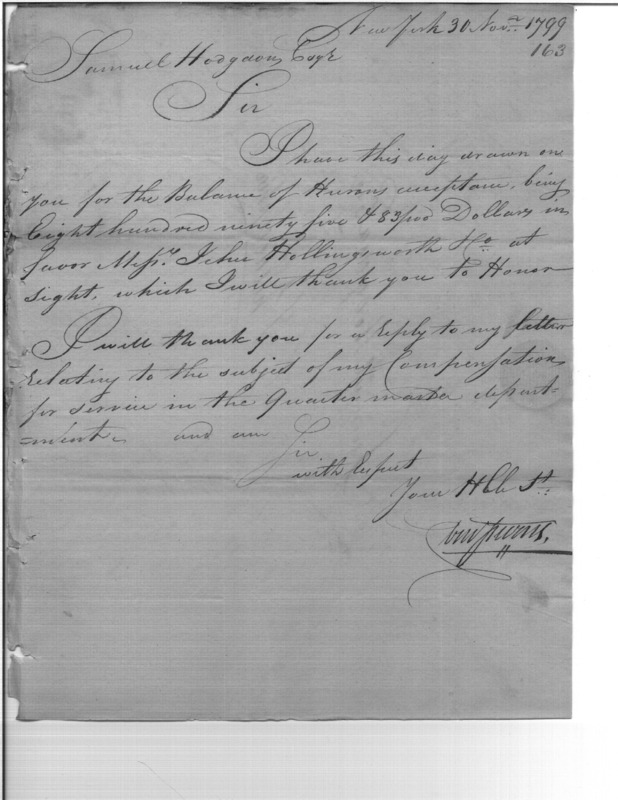 New York 30 Novr. 1799
163
Samuel Hodgdon Esqr
Sir
I have this day drawn on
you for the Balance of acceptance, being
Eight hundred ninety five & 83/100 Dollars in
favor Messrs. Jehu Hollingsworth & Co. at
sight, which I will thank you to Honor
I will thank you for a Reply to my letter
Relating to the subject of my Compensation
for service in the Quarter master depart=
=ment, and am
Sir
with Respect
Your Hble St: